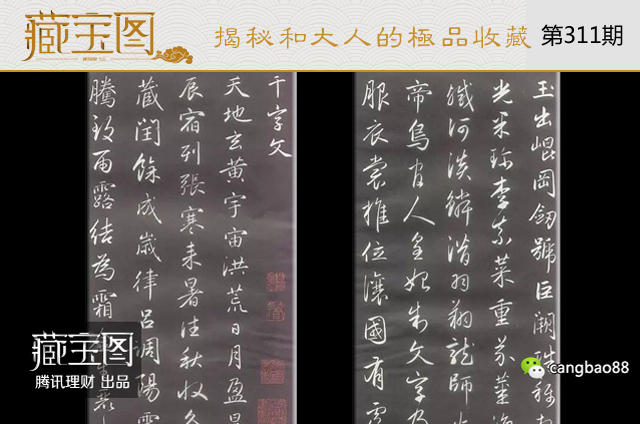 藏宝图
揭秘和大人的極品收藏
第311期
千字文
天地玄黃宇宙洪荒日月盈
辰宿列張寒来暑往秋收
藏閏餘成歲律呂調陽雲
騰致雨露結為霜
玉出崐岡劒號巨闕珠称
光果珍李柰菜重芥薑海
鹹河淡鱗潛羽翔龍師火
帝鳥官人皇始制文字乃
服衣裳推位讓國有虞
藏宝图
腾讯理财 出品
cangbao88